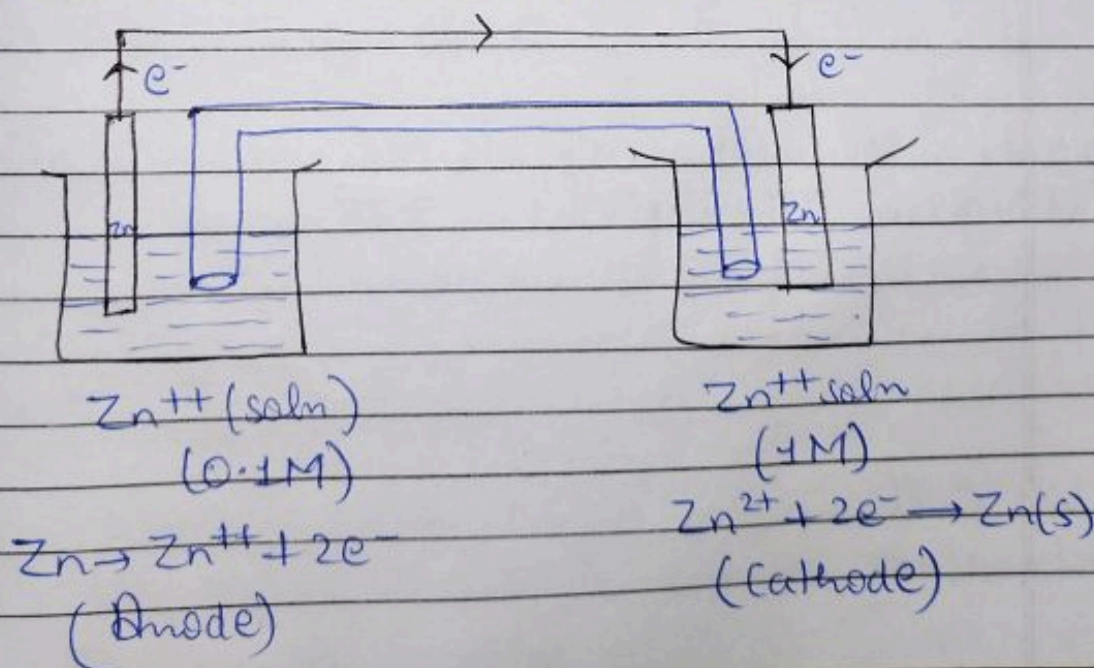 e⁻
e⁻
Zn
Zn
Zn⁺⁺ (soln)
(0.1M)
Zn → Zn⁺⁺ + 2e⁻
(Anode)
Zn⁺⁺ soln
(1M)
Zn²⁺ + 2e⁻ → Zn(s)
(Cathode)